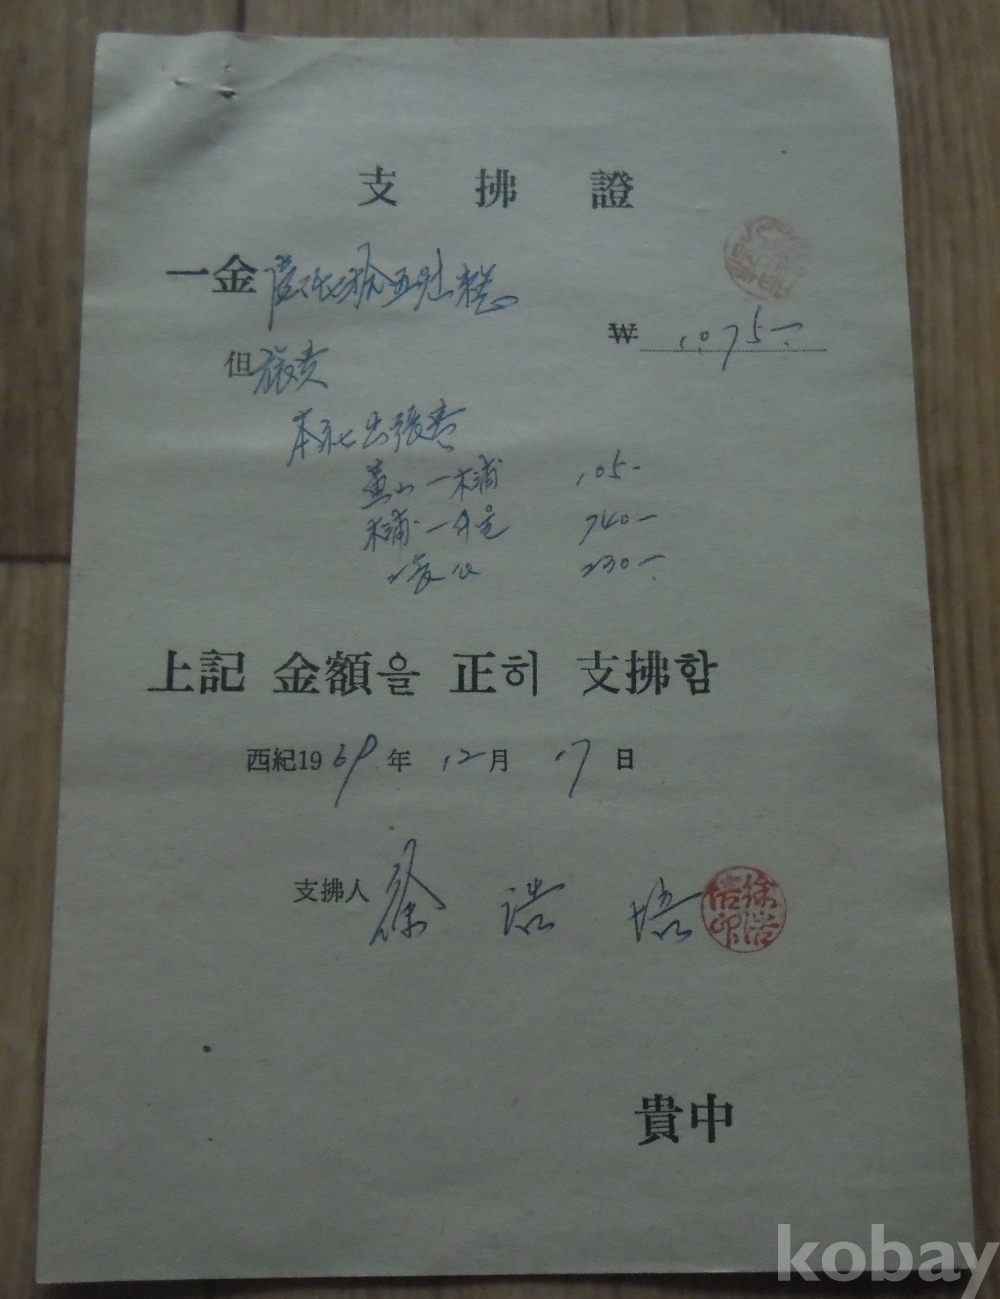 支拂證
一金 壹仟七拾五원整
₩ 1075-
但 旅費
本社出張費
105-
木浦- 740-
230-
上記 金額을 正히 支拂함
西紀1969年 12月 17日
支拂人 徐 浩 培
貴中
kobay